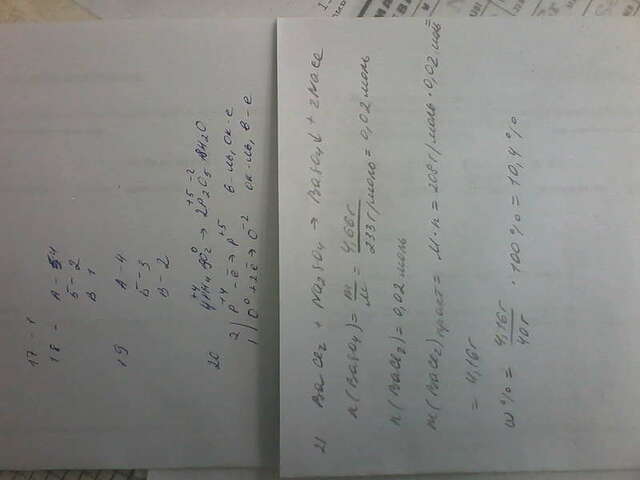 17 - 1
18 - А - 4
Б - 2
В 1
19 А - 4
Б - 3
В - 2
20 → 2P2O5 + 6H2O
2) P+4 - ē → P+5 в-ль, ок-е
1) O0 + 2ē → O-2 ок-ль, в-е
21 BaCl2 + Na2SO4 → BaSO4↓ + 2NaCl
n(BaSO4) = m/M = 4,66г / 233 г/моль = 0,02 моль
n(BaCl2) = 0,02 моль
m(BaCl2) = M·n = 208 г/моль · 0,02 моль
= 4,16г
ω% = 4,16г / 40г · 100% = 10,4%